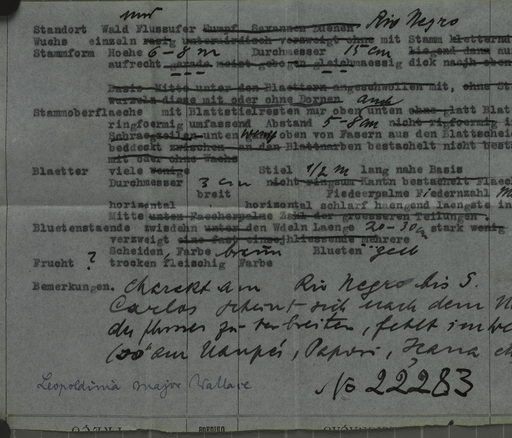 nur
Standort Wald Flussufer Sumpf Savannen Duenen Rio Negro
Wuchs einzeln rasig unterirdisch verzweigt ohne mit Stamm kletternd
Stammform Hoehe 6-8 m Durchmesser 15 cm liegend dann auf
aufrecht gerade meist gebogen gleichmaessig dick nach oben
Basis Mitte unter den Blaettern angeschwollen mit, ohne St
wurzeln diese mit oder ohne Dornen auch
Stammoberflaeche mit Blattstielresten nur oben unten ohne glatt Blat
ringfoermig umfassend Abstand 5-8 cm nicht ringfoermig
Schraegzeilen unten oben von Fasern aus den Blattscheid
bedeckt zwischen an den Blattnarben bestachelt nicht besta
mit oder ohne Wachs
Blaetter viele wenige Stiel 1/2 m lang nahe Basis
Durchmesser 3 cm nicht ringsum Kantn bestachelt Flaech
breit Fiederpalme Fiedernzahl
horizontal horizontal schlarf haengend laengste in
Mitte unten Faecherpalme Zahl der groesseren Teilungen
Bluetenstaende zwisdehn unter den Wdeln Laenge 20-30 cm stark wenig
verzweigt eine fast einschliessende mehrere
Scheiden Farbe braun Blueten gelb
Frucht ? trocken fleischig Farbe
Bemerkungen. Charakt am Rio Negro bis S.
Carlos scheint sich nach dem
du flusses zu verbreiten, fehlt im
am Uaupés, Papori, Içana
Leopoldinia major Wallace No 22283